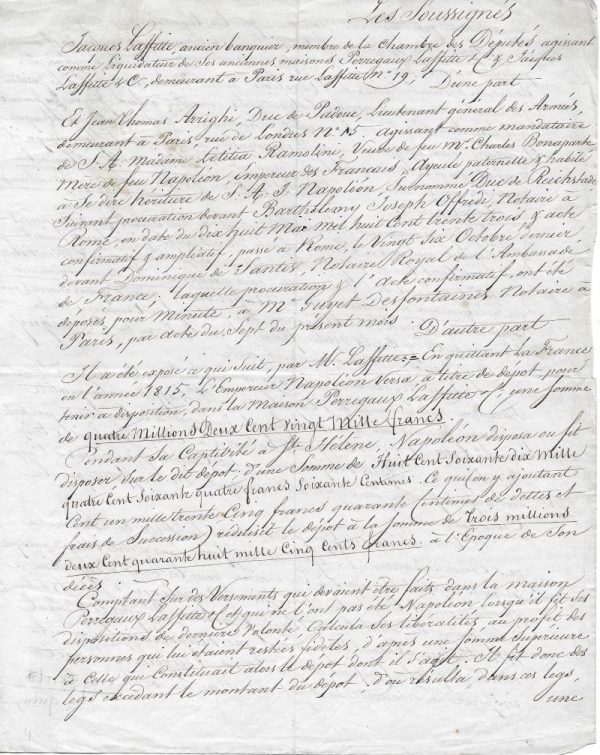 Les Soussignés
Jacques Laffitte, ancien banquier, membre de la Chambre des Députés agissant
comme Liquidateur de Ses anciennes maisons Perregaux Laffitte & Ce & Jacques
Laffitte & Ce, demeurant à Paris rue Laffitte No 19, D'une part
Et Jean Thomas Arrighi, Duc de Padoue, Lieutenant général des Armées,
demeurant à Paris, rue de Londres No 15. Agissant comme mandataire
de S. A. Madame Létitia Ramolini, Veuve de feu Mr Charles Bonaparte
Mère de feu Napoléon, Empereur des Français, Ayeule paternelle & habile
à Se dire héritière de S. A. I. Napoléon, Surnommé Duc de Reichstadt
Suivant procuration devant Barthélemy Joseph Offrédi, Notaire à
Rome, en date du dix huit Mai Mil huit Cent trente trois & acte
confirmatif & ampliatif, passé à Rome, le Vingt Six Octobre dernier
devant Dominique de Santis, Notaire Royal de l'Ambassade
de France; laquelle procuration & l'acte confirmatif, ont été
déposés, pour Minute, à Me Guyet Desfontaines Notaire à
Paris, par acte du Sept du présent mois D'autre part
Il a été exposé ce qui Suit, par M. Laffitte = En quittant La France
en l'année 1815, L'Empereur Napoléon Versa, à titre de dépôt, pour
tenir à disposition, dans la Maison Perregaux Laffitte & Ce, une Somme
de quatre Millions Deux Cent Vingt Mille francs.
Pendant Sa Captivité à Ste Hélène, Napoléon disposa ou fit
disposer Sur le dit dépôt, d'une Somme de Huit Cent Soixante dix Mille
quatre Cent Soixante quatre francs Soixante Centimes. Ce qui en y ajoutant
Cent un mille trente Cinq francs quarante Centimes de dettes et
frais de Succession) réduisit le dépôt à la Somme de Trois millions
deux Cent quarante huit mille Cinq Cents francs. à l'Epoque de Son
décès
Comptant Sur des Versements qui devaient être faits dans la maison
Perregaux Laffitte & Ce et qui ne l'ont pas été, Napoléon, lorsqu'il fit Ses
dispositions de dernière Volonté, Calcula Ses libéralités, au profit des
personnes qui lui étaient restées fidèles, d'après une Somme Supérieure
à Celle qui Constituait alors le dépôt dont il S'agit. Il fit donc des
legs excédant le montant du dépôt, d'où résulta, dans ces legs,
une